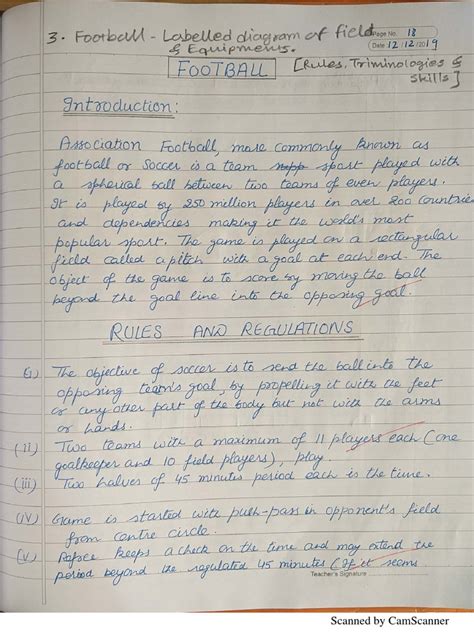 3. Football - Labelled diagram of field
& Equipments.
Page No. 18
Date 12/12/2019
FOOTBALL
[Rules, Triminologies &
skills]
Introduction:
Association Football, more commonly known as
football or Soccer is a team sport played with
a spherical ball between two teams of even players.
It is played by 250 million players in over 200 countries
and dependencies making it the world's most
popular sport. The game is played on a rectangular
field called a pitch with a goal at each end. The
object of the game is to score by moving the ball
beyond the goal line into the opposing goal.
RULES AND REGULATIONS
(i) The objective of soccer is to send the ball into the
opposing team's goal, by propelling it with the feet
or any other part of the body but not with the arms
or hands.
(ii) Two teams with a maximum of 11 players each (one
goalkeeper and 10 field players), play.
(iii) Two halves of 45 minutes period each is the time.
(iv) Game is started with push-pass in opponent's field
from centre circle.
(v) Refree keeps a check on the time and may extend the
period beyond the regulated 45 minutes (If it seems
Teacher's Signature
Scanned by CamScanner